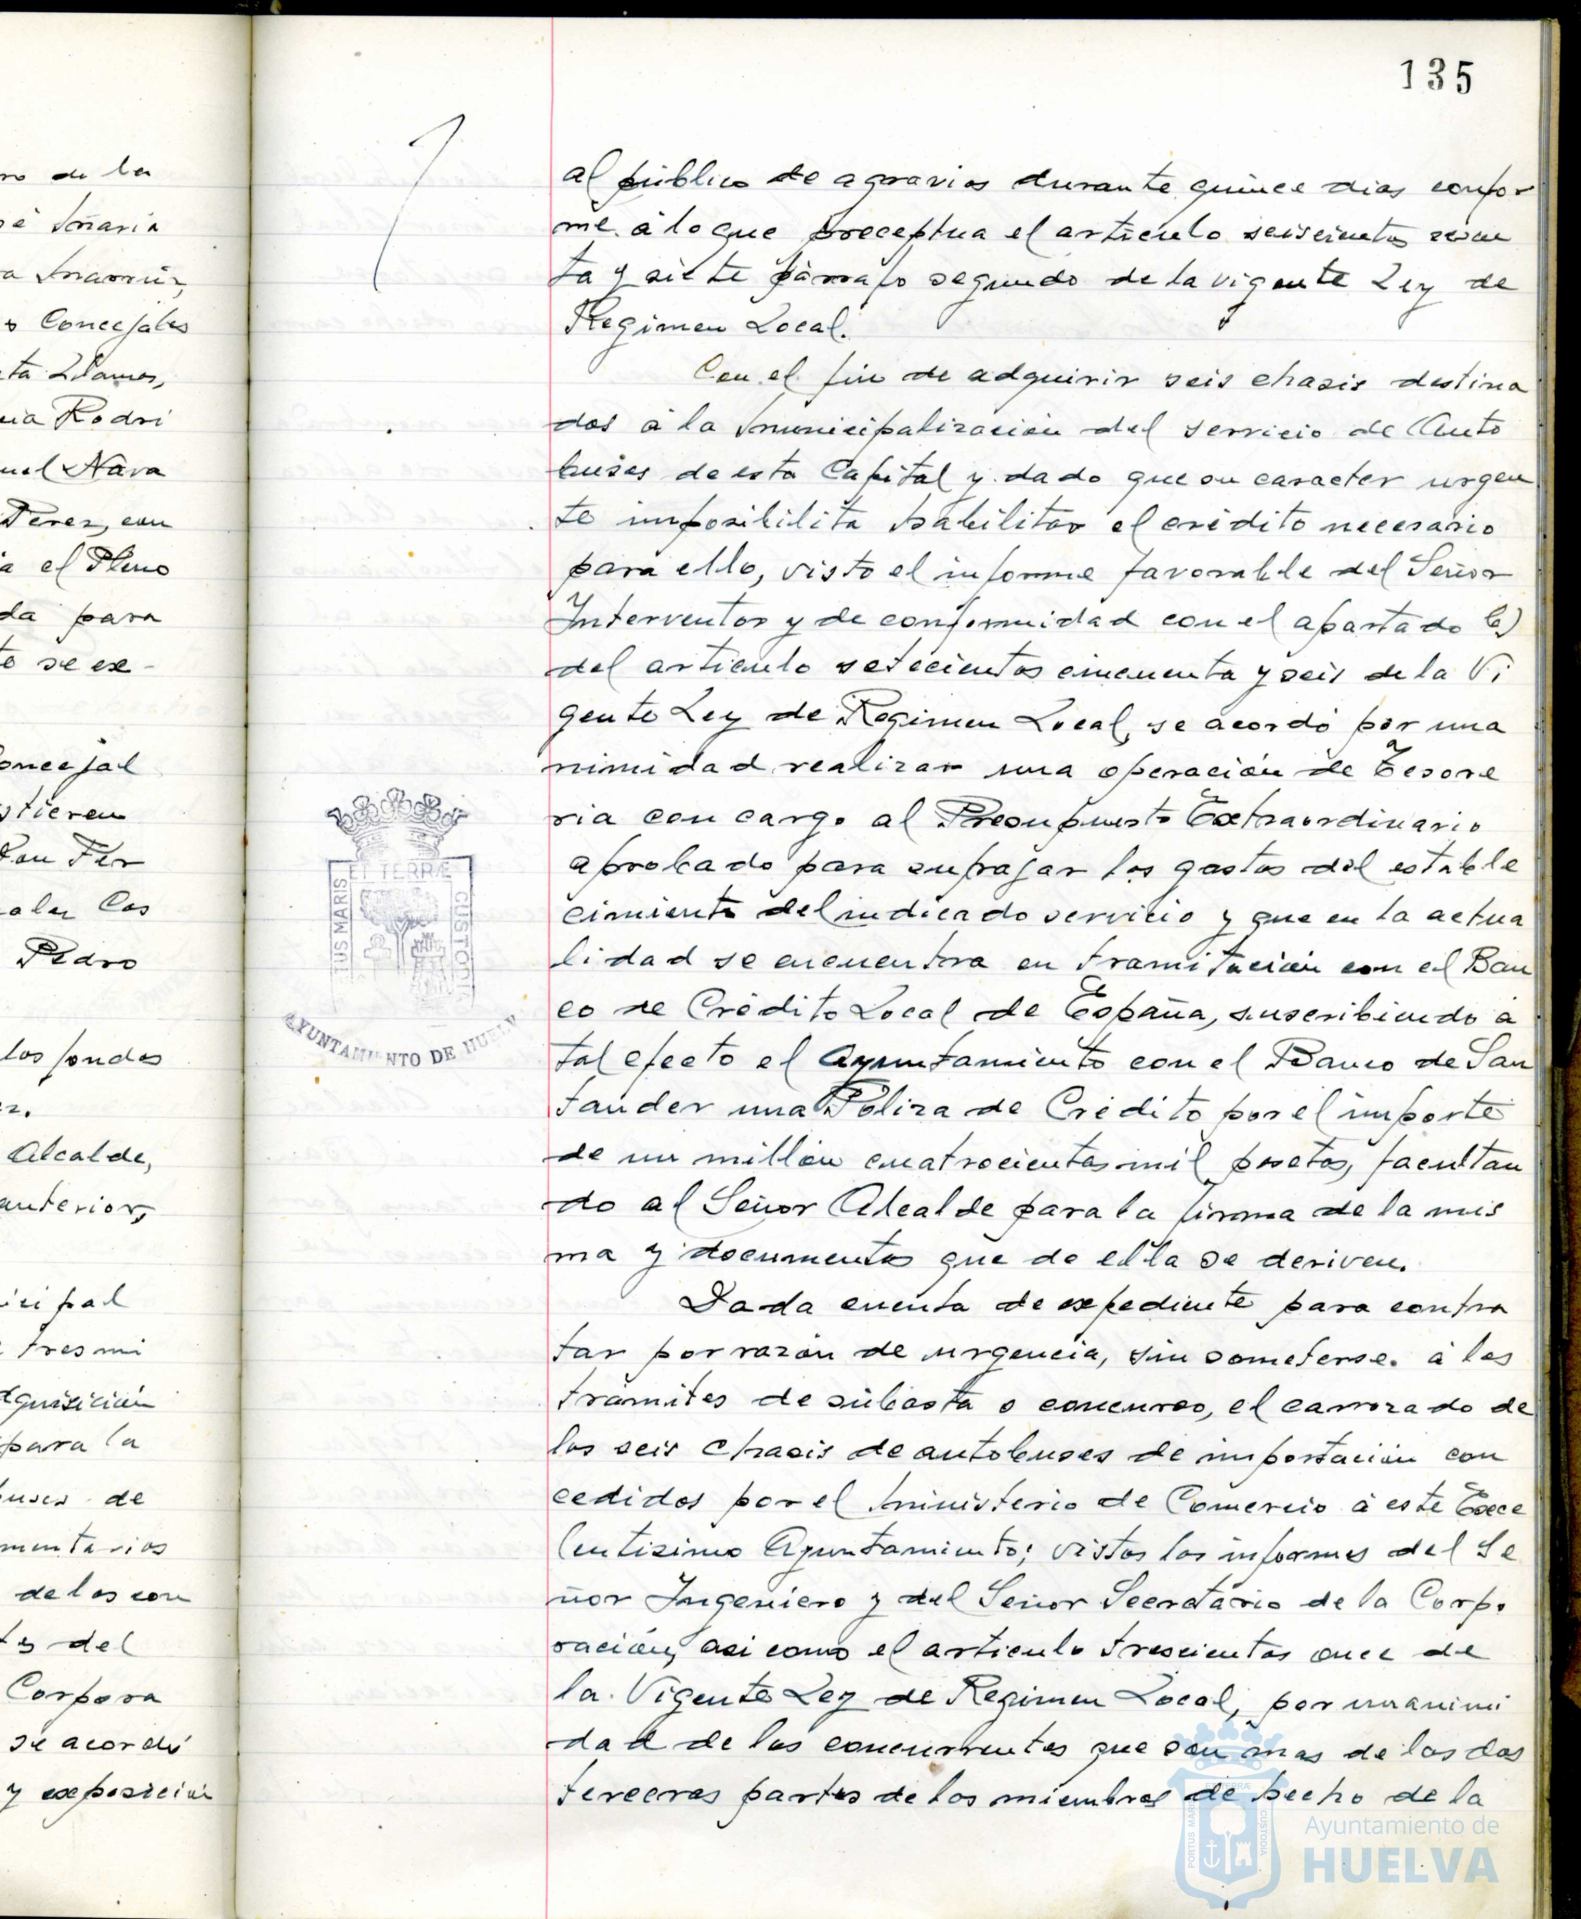 135
al público de agravios durante quince dias confor
me á lo que preceptua el articulo seiscientos
ta y siete párrafo segundo de la vigente Ley de
Regimen Local.
Con el fin de adquirir seis chasis destina
dos á la municipalización del servicio de Auto
buses de esta Capital y dado que su caracter urgen
te imposibilita habilitar el crédito necesario
para ello, visto el informe favorable del Señor
Interventor y de conformidad con el apartado
del articulo setecientos cincuenta y seis de la Vi
gente Ley de Regimen Local, se acordó por una
nimidad realizar una operación de Tesore
ria con cargo al Presupuesto Extraordinario
aprobado para sufragar los gastos del estable
cimiento del indicado servicio y que en la actua
lidad se encuentra en tramitación con el Ban
co de Crédito Local de España, suscribiendo á
tal efecto el Ayuntamiento con el Banco de San
tander una Póliza de Crédito por el importe
de un millón cuatrocientas mil pesetas, facultan
do al Señor Alcalde para la firma de la mis
ma y documentos que de ella se deriven.
Dada cuenta de expediente para contra
tar por razón de urgencia, sin someterse á los
trámites de subasta o concurso, el carrozado de
los seis chasis de autobuses de importación con
cedidos por el Ministerio de Comercio á este Exce
lentisimo Ayuntamiento; vistos los informes del Se
ñor Ingeniero y del Señor Secretario de la Corpo
ración, asi como el articulo trescientos once de
la Vigente Ley de Regimen Local, por unanimi
dad de los concurrentes que son mas de las dos
terceras partes de los miembros de hecho de la
ET TERRÆ
TUS MARIS
CUSTODIA
AYUNTAMIENTO DE HUELV
ro de la
sé Maria
Concejales
ta Llamas,
cia Rodri
uel Nava
Perez, con
a el Pleno
da para
to se ex-
oncejal
stieron
Don Fer
Pedro
los fondos
ez.
Alcalde,
anterior,
icipal
tres mi
dquisición
para la
buses de
mentarios
de los con
del
Corpora
se acordó
y exposición
PORTUS MARIS
ET TERRÆ
CUSTODIA
Ayuntamiento de
HUELVA